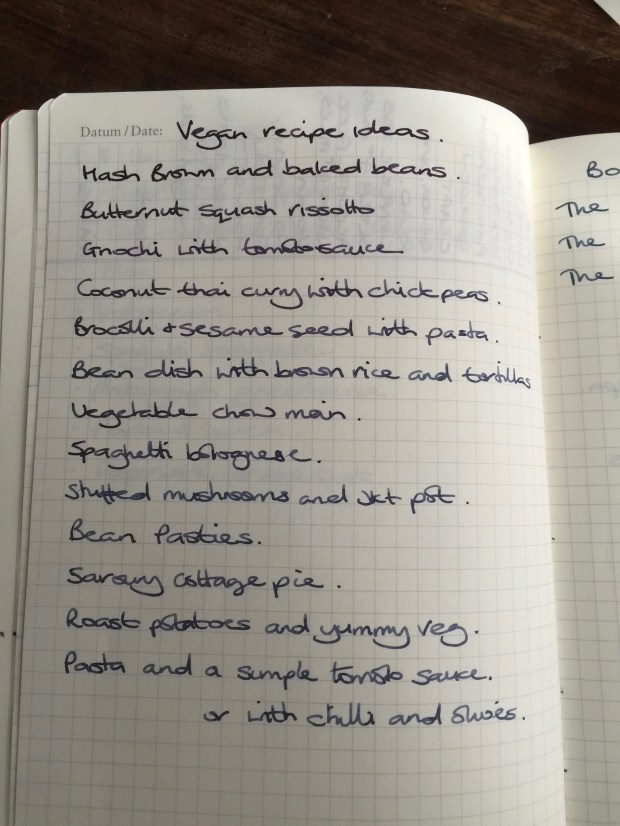 Datum / Date: Vegan recipe ideas.
Hash Brown and baked beans.
Butternut squash rissotto
Gnochi with tomato sauce
Coconut thai curry with chick peas.
Brocolli + sesame seed with pasta.
Bean dish with brown rice and tortillas
Vegetable chow mein.
Spaghetti bolognese.
Stuffed mushrooms and jkt pot.
Bean Pasties.
Savoury cottage pie.
Roast potatoes and yummy veg.
Pasta and a simple tomato sauce.
or with chilli and olives.
Bo
The
The
The